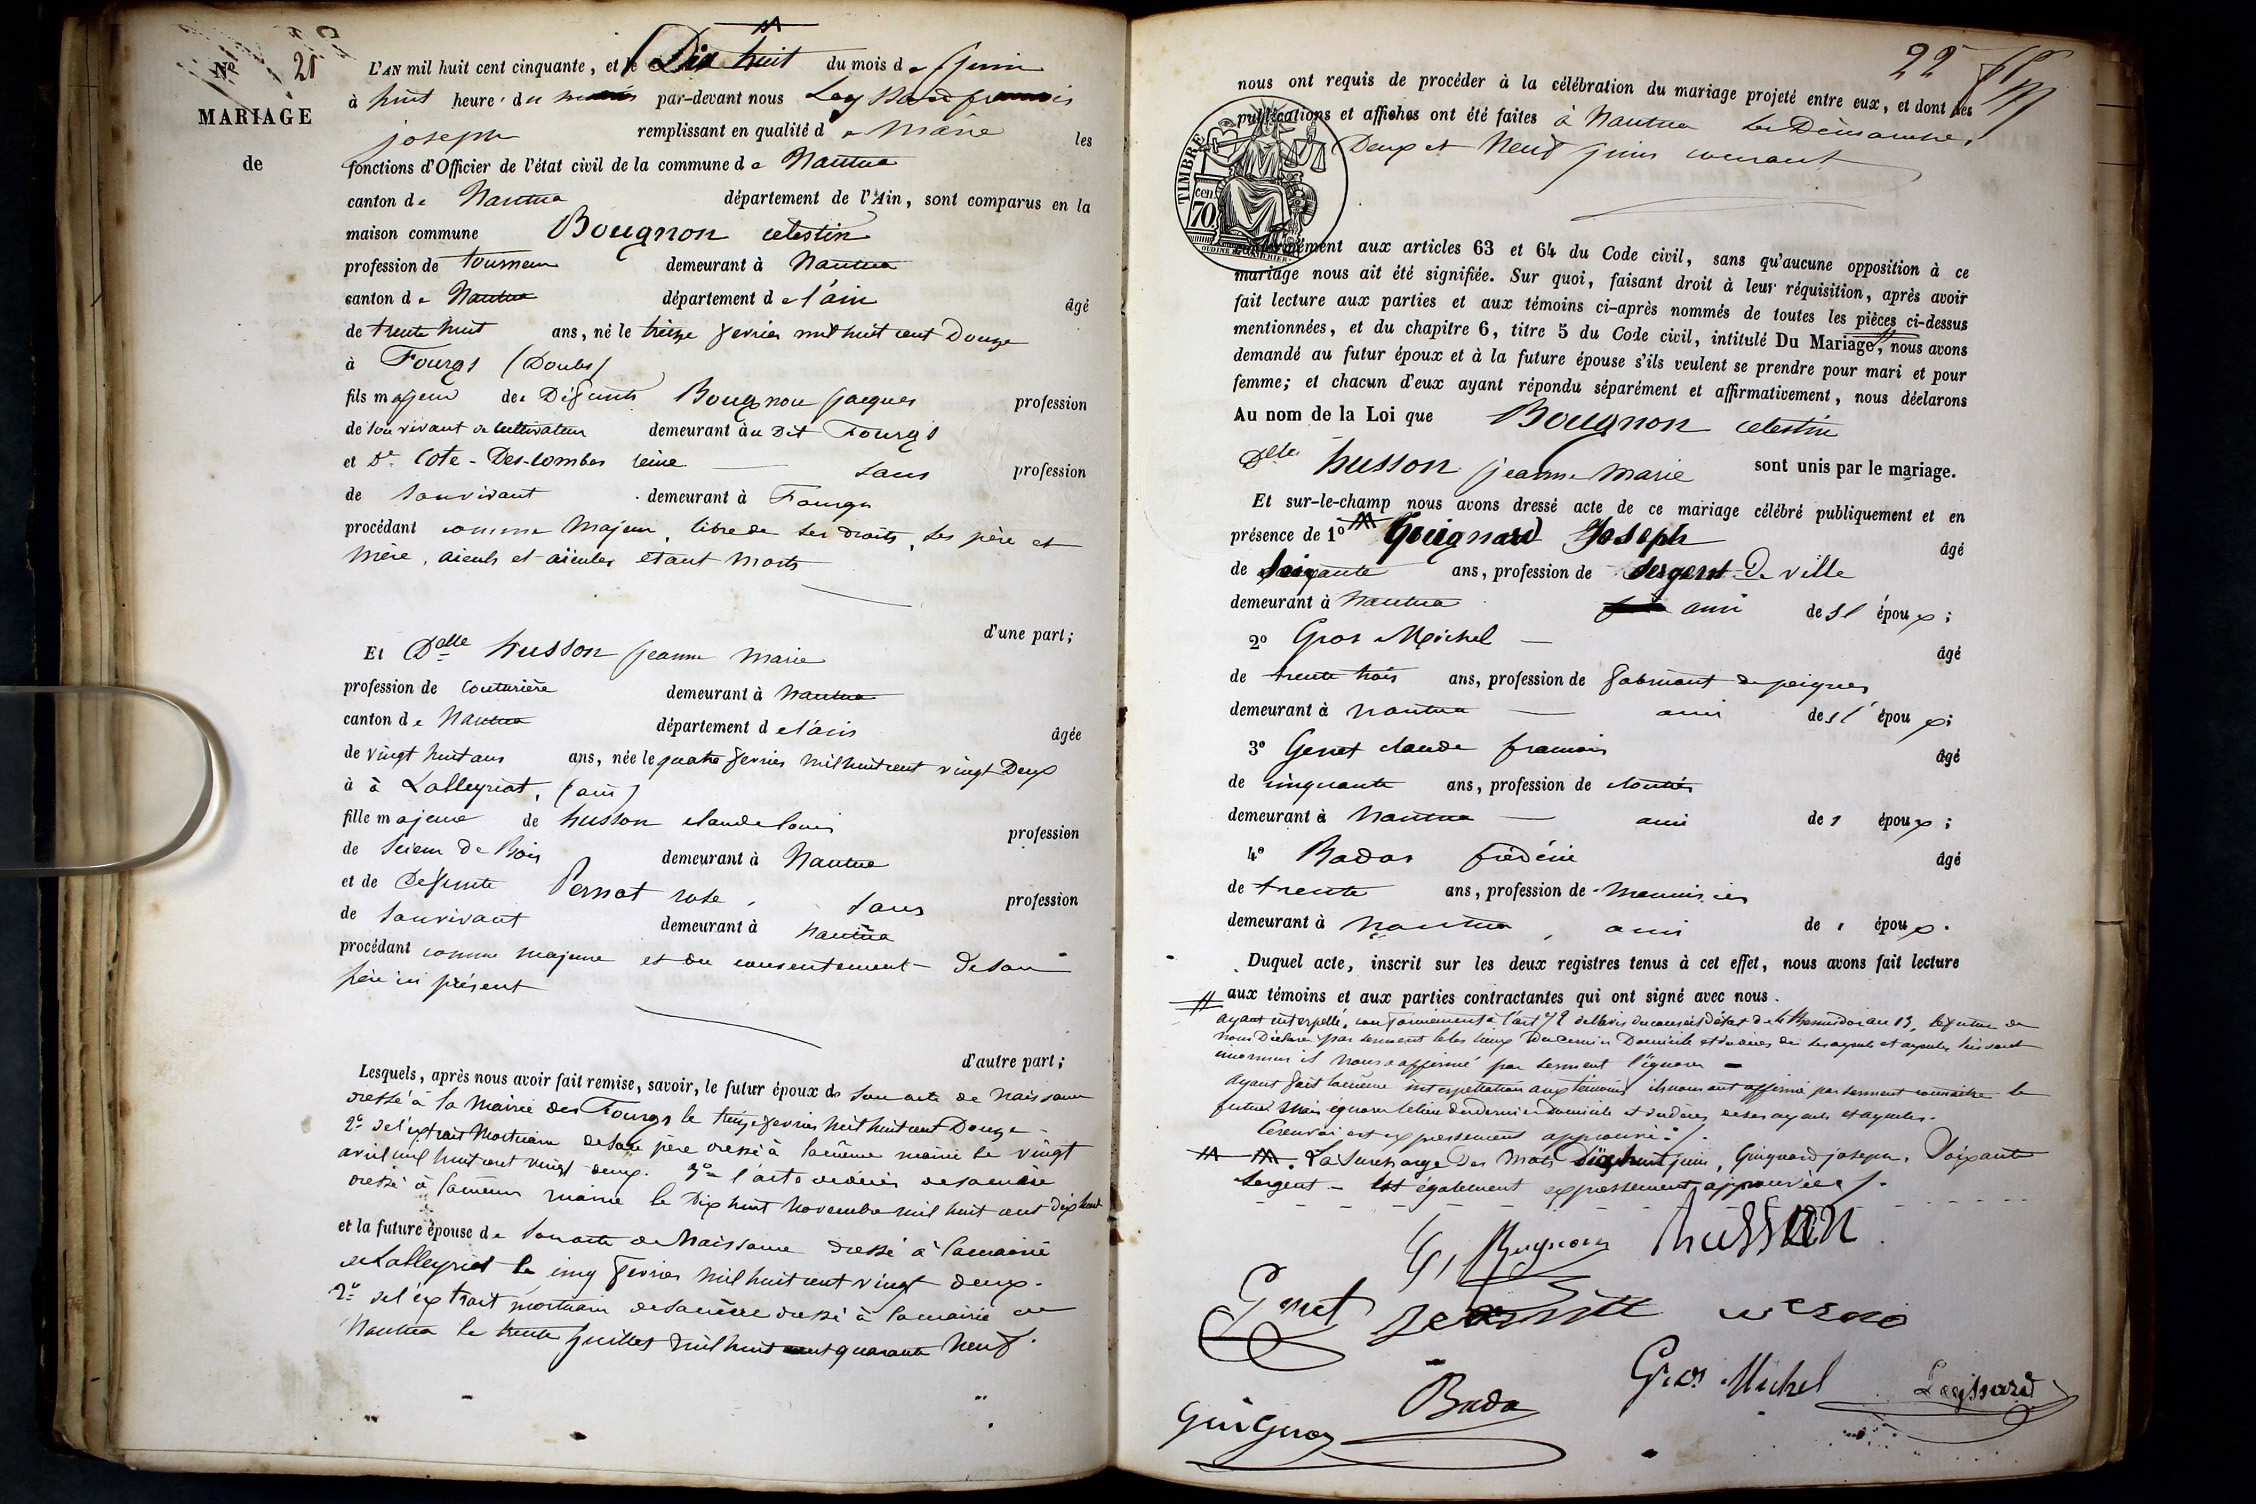 Nº 21
MARIAGE
de
L'AN mil huit cent cinquante, et le Dix huit du mois de juin
à huit heures du par-devant nous Leyssard françois
joseph remplissant en qualité de Maire les
fonctions d'Officier de l'état civil de la commune de Nantua
canton de Nantua département de l'Ain, sont comparus en la
maison commune Bougnon celestin
profession de tourneur demeurant à Nantua
canton de Nantua département de l'ain âgé
de trente huit ans, né le treize fevrier mil huit cent Douze
à Fourgs (Doubs)
fils majeur des Défunts Bougnon jacques profession
de son vivant de cultivateur demeurant au Dit Fourgs
et De Cote-Des-combes reine — sans profession
de son vivant demeurant à Fourgs
procédant comme Majeur, libre de ses droits, ses père et
mère, aieuls et aïeules étant morts
d'une part;
Et Delle husson jeanne marie
profession de couturière demeurant à Nantua
canton de Nantua département de l'ain âgée
de vingt huit ans ans, née le quatre fevrier mil huit cent vingt Deux
à à Lalleyriat, (ain)
fille majeure de husson claude louis profession
de Scieur de Bois demeurant à Nantua
et de Défunte Pernot rose, sans profession
de son vivant demeurant à Nantua
procédant comme majeure et du consentement de son
père ici présent
d'autre part;
Lesquels, après nous avoir fait remise, savoir, le futur époux de son acte de naissance
dressé à la Mairie des Fourgs le treize fevrier mil huit cent Douze –
2º de l'extrait Mortuaire de son père dressé à la même mairie le vingt
avril mil huit cent vingt deux. 3º l'acte de décès de sa mère
dressé à la même mairie le dix huit Novembre mil huit cent dix huit
et la future épouse de son acte de Naissance dressé à la mairie
de Lalleyriat le cinq fevrier mil huit cent vingt deux.
2º de l'extrait mortuaire de sa mère dressé à la mairie de
Nantua le trente juillet mil huit cent quarante neuf.
22
nous ont requis de procéder à la célébration du mariage projeté entre eux, et dont les
publications et affiches ont été faites à Nantua les Dimanches
Deux et Neuf juin courant
TIMBRE
70 cen.
conformément aux articles 63 et 64 du Code civil, sans qu'aucune opposition à ce
mariage nous ait été signifiée. Sur quoi, faisant droit à leur réquisition, après avoir
fait lecture aux parties et aux témoins ci-après nommés de toutes les pièces ci-dessus
mentionnées, et du chapitre 6, titre 5 du Code civil, intitulé Du Mariage, nous avons
demandé au futur époux et à la future épouse s'ils veulent se prendre pour mari et pour
femme; et chacun d'eux ayant répondu séparément et affirmativement, nous déclarons
Au nom de la Loi que Bougnon celestin
Delle husson jeanne Marie sont unis par le mariage.
Et sur-le-champ nous avons dressé acte de ce mariage célébré publiquement et en
présence de 1º Guignard Joseph âgé
de soixante ans, profession de sergent de ville
demeurant à Nantua ami de l' époux;
2º Gros Michel — âgé
de trente trois ans, profession de fabricant de peignes
demeurant à Nantua — ami de l' époux;
3º Genet claude francois âgé
de cinquante ans, profession de cloutier
demeurant à Nantua — ami de l' époux;
4º Badar frédéric âgé
de trente ans, profession de menuisier
demeurant à Nantua, ami de l' époux.
Duquel acte, inscrit sur les deux registres tenus à cet effet, nous avons fait lecture
aux témoins et aux parties contractantes qui ont signé avec nous.
ayant interpellé, conformément à l'avis du conseil d'état de 4 Thermidor an 13, le futur de
nous Déclarer par serment le lieu du dernier Domicile et du décès de ses ayeuls et ayeules
il nous a affirmé par serment l'ignorer –
ayant fait la même interpellation aux témoins, ils nous ont affirmé par serment connaitre le
futur Mais ignorer le lieu du dernier domicile et du décès de ses ayeuls et ayeules.
Ce renvoi est expressement approuvé.
La surcharge des mots Dix huit juin, Guignard joseph, Soixante
sergent – est également expressement approuvée.
C. Bougnon husson
Genet
Gros Michel Leyssard
Bada
Guignar